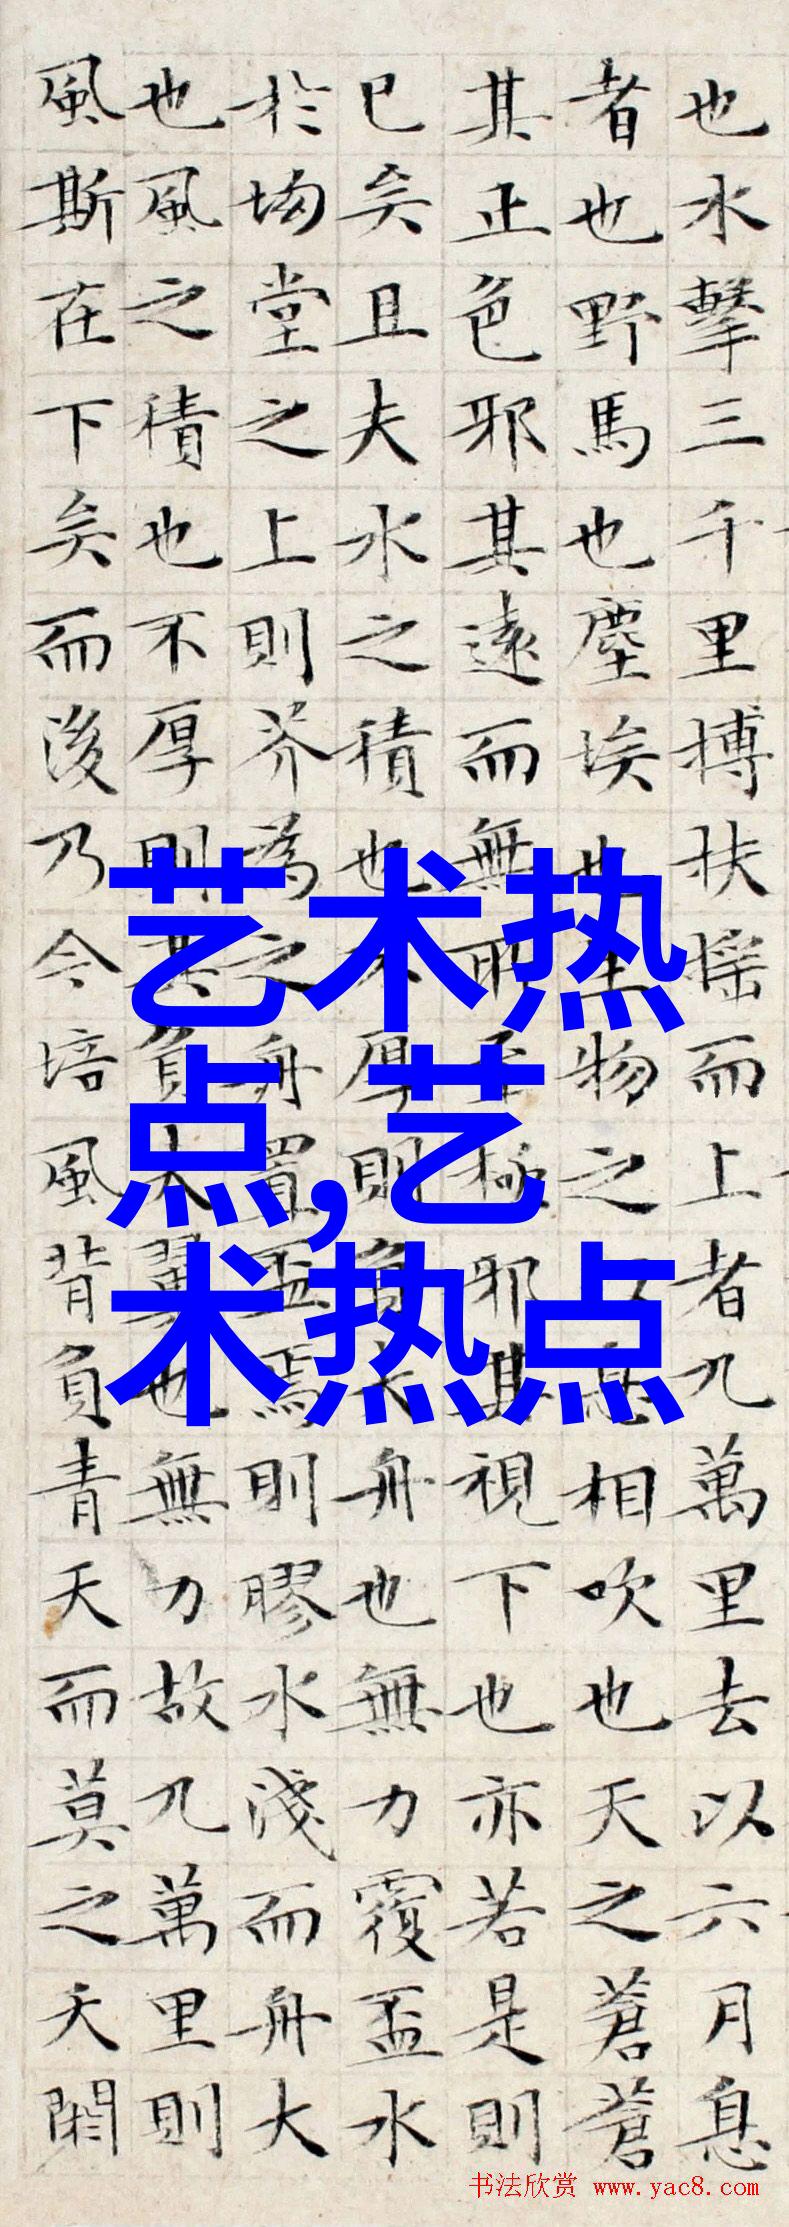 也水擊三千里搏扶搖而上者九萬里去以六月息
者也野馬也塵埃也生物之以息相吹也天之蒼蒼
其正色邪其遠而無所至極邪其視下也亦若是則
已矣且夫水之積也不厚則負大舟也無力覆盃水
於坳堂之上則芥為之舟置盃焉則膠水淺而舟大
也風之積也不厚則其負大翼也無力故九萬里則
風斯在下矣而後乃今培風背負青天而莫之夭閼
艺术热
点,艺
术热点
书法欣赏 www.yac8.com